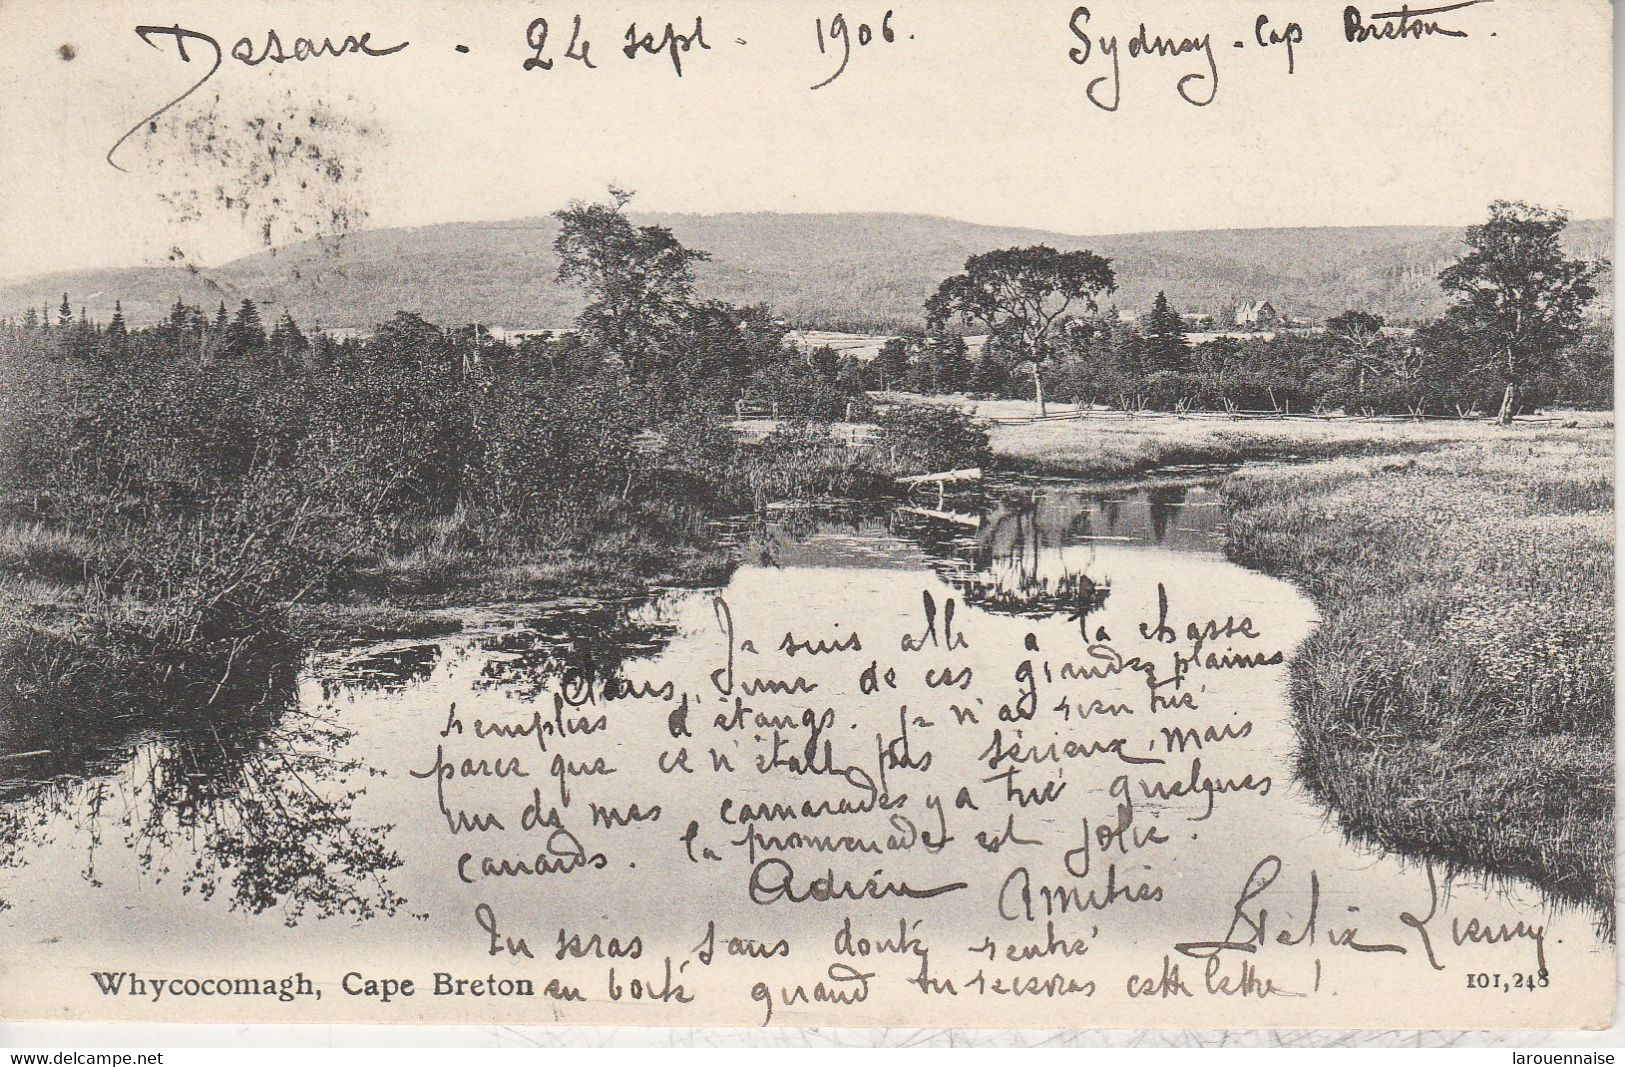 Desaix - 24 sept - 1906. Sydney - Cap Breton.
Je suis allé a la chasse
dans l'une de ces grandes plaines
remplies d'étangs. Je n'ai rien tué
parce que ce n'était pas sérieux, mais
un de mes camarades y a tué quelques
canards. la promenade est jolie.
Adieu Amitiés
Félix
Tu seras sans doute rentré
Whycocomagh, Cape Breton en boité quand tu recevras cette lettre! 101,248
delcampe.net larouennaise